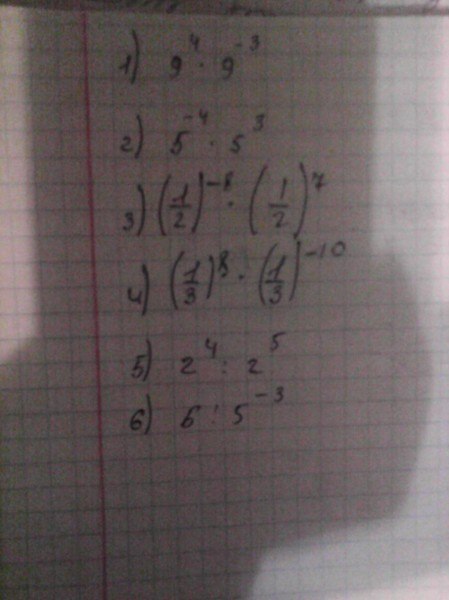 1) 9⁴ · 9⁻³
2) 5⁻⁴ · 5³
3) (1/2)⁻⁸ · (1/2)⁷
4) (1/3)⁸ · (1/3)⁻¹⁰
5) 2⁴ : 2⁵
6) 5 : 5⁻³